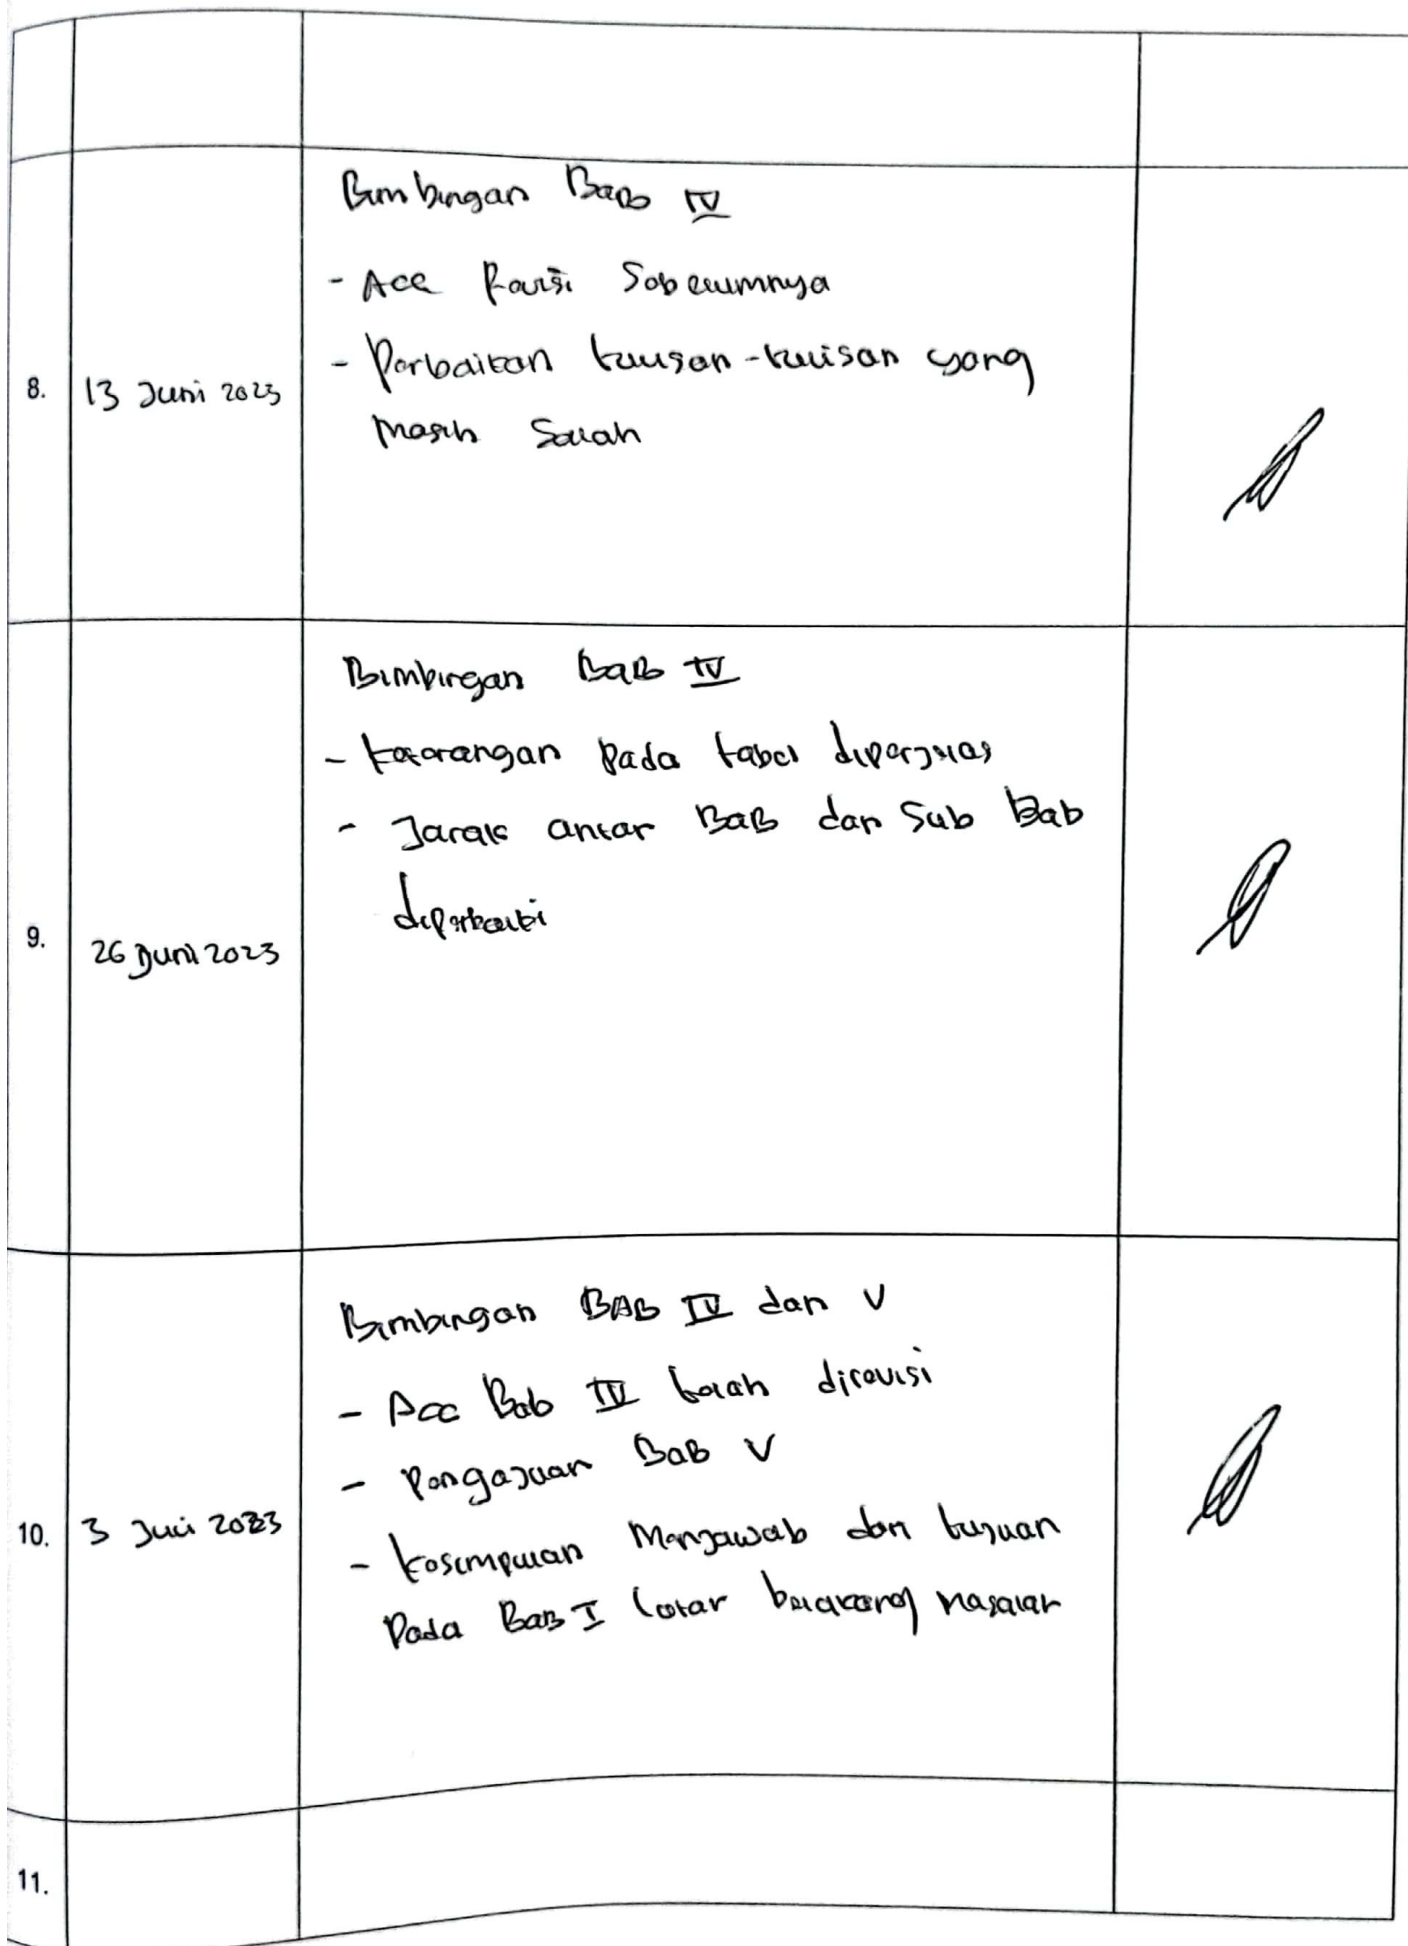 Bimbingan Bab IV
- Acc Revisi Sebelumnya
- Perbaikan tulisan-tulisan yang
8. 13 Juni 2023
masih Salah
Bimbingan BaB IV
- keterangan pada tabel diperjelas
- Jarak antar BaB dan Sub Bab
diperbaiki
9. 26 Juni 2023
Bimbingan BAB IV dan V
- Acc Bab IV telah direvisi
- Pengajuan BaB V
10. 3 Juli 2023
- kesimpulan Menjawab dari tujuan
Pada BaB I latar belakang masalah
11.